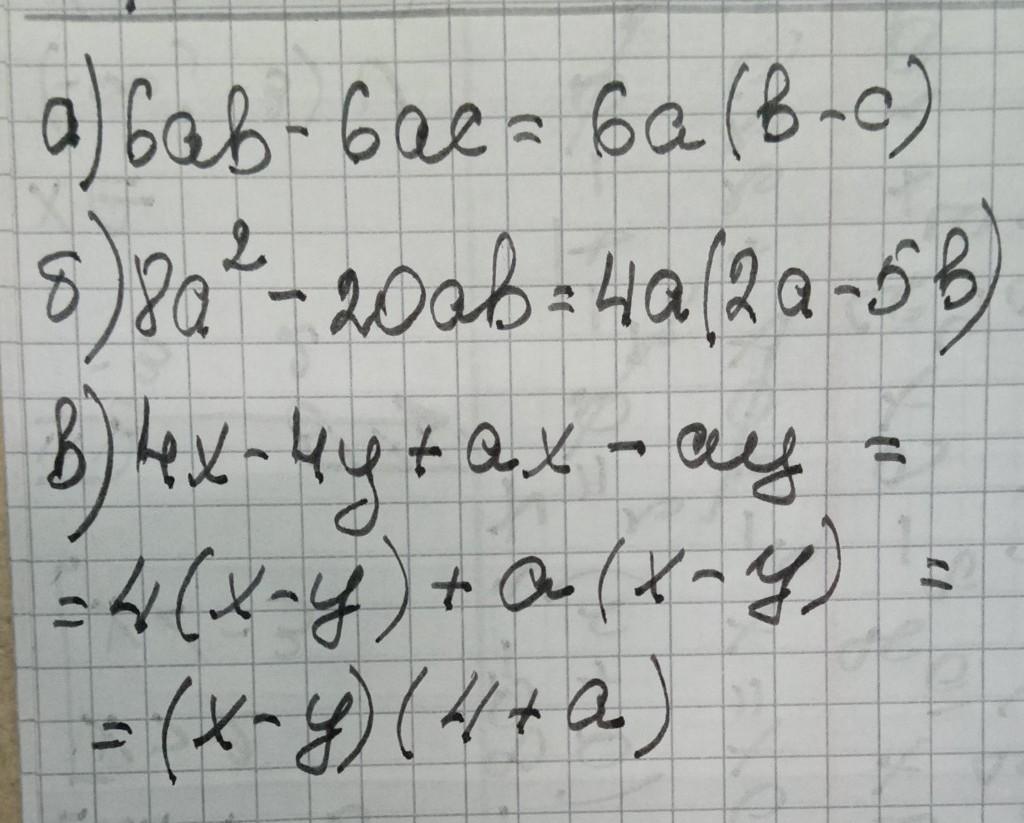 а) 6ab - 6ac = 6a(b - c)
б) 8a² - 20ab = 4a(2a - 5b)
в) 4x - 4y + ax - ay =
= 4(x - y) + a(x - y) =
= (x - y)(4 + a)